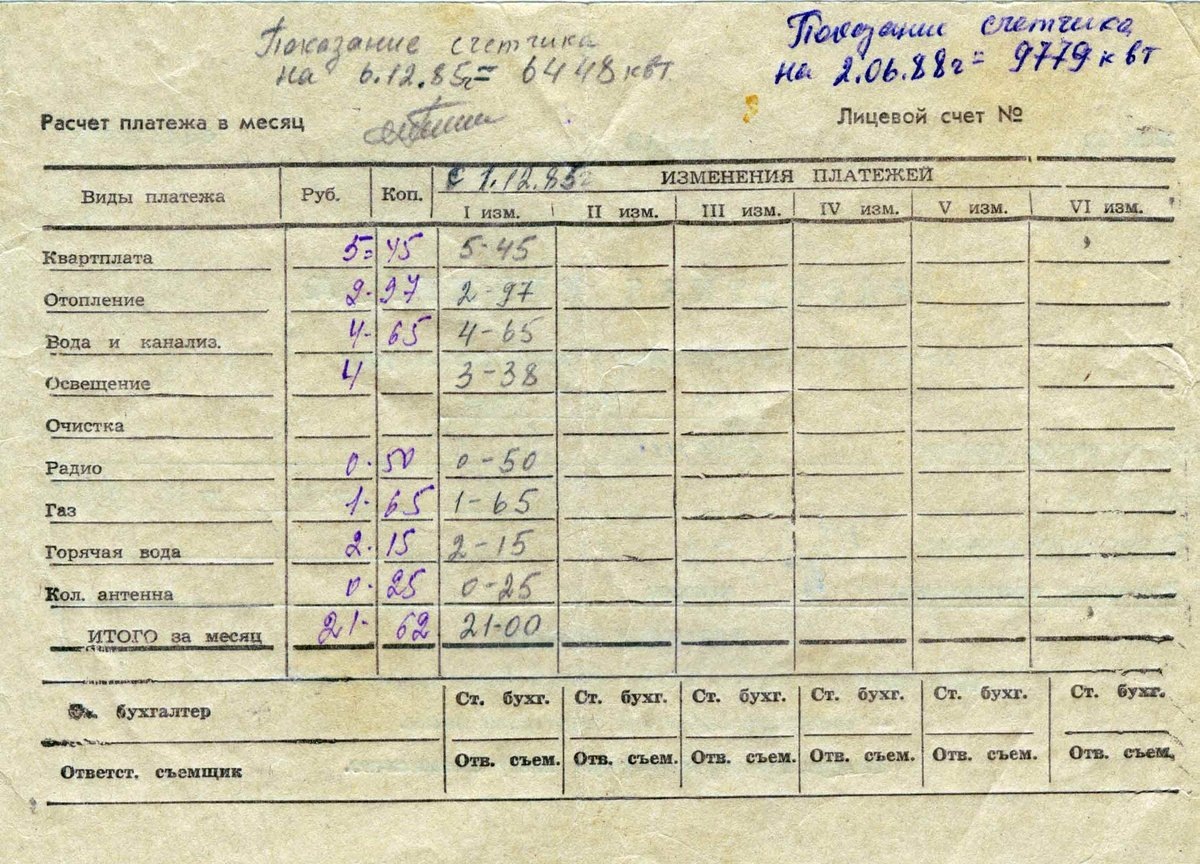 Показание счетчика
на 6.12.85г= 6448 квт
Показание счетчика
на 2.06.88г= 9779 квт
Расчет платежа в месяц
Лицевой счет №
Виды платежа Руб. Коп. с 1.12.85г ИЗМЕНЕНИЯ ПЛАТЕЖЕЙ
I изм. II изм. III изм. IV изм. V изм. VI изм.
Квартплата 5= 45 5-45
Отопление 2- 97 2-97
Вода и канализ. 4- 65 4-65
Освещение 4 3-38
Очистка
Радио 0- 50 0-50
Газ 1- 65 1-65
Горячая вода 2- 15 2-15
Кол. антенна 0- 25 0-25
ИТОГО за месяц 21- 62 21-00
бухгалтер Ст. бухг. Ст. бухг. Ст. бухг. Ст. бухг. Ст. бухг. Ст. бухг.
Ответст. съемщик Отв. съем. Отв. съем. Отв. съем. Отв. съем. Отв. съем. Отв. съем.